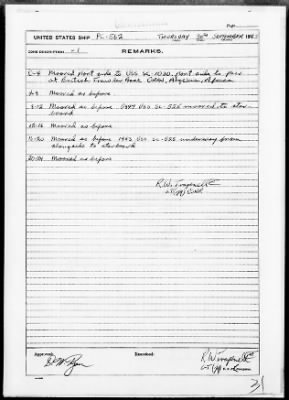 Page
UNITED STATES SHIP PC-562 THURSDAY 30th SEPTEMBER 194
ZONE DESCRIPTION -1 REMARKS.
0-4 Moored port side to USS SC-1030, port side to pier
at British Trawler Base Oran, Algeria, Africa
4-8 Moored as before
8-12 Moored as before 0947 USS SC-525 moored to star-
board
12-16 Moored as before
16-20 Moored as before 1953 USS SC-525 underway from
alongside to starboard
20-24 Moored as before
R.W.
Lt (jg) USNR
Approved:
Examined:
R.W.
Lt (jg)
31